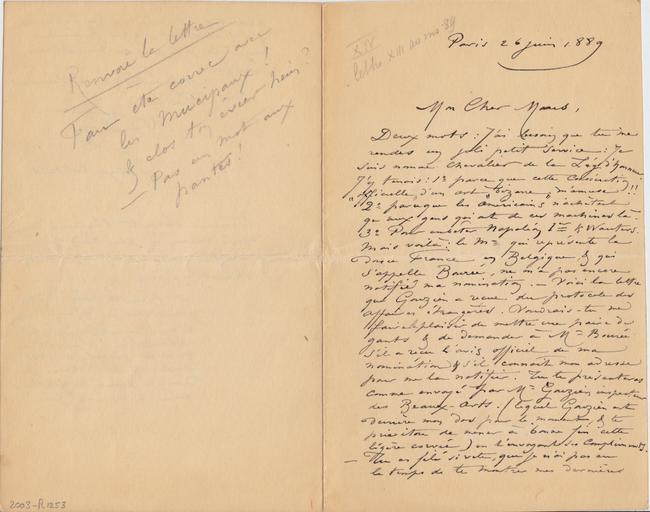 Renvoie la lettre
Faire cette corvée avec
les Municipaux!
& clos ton évier hein?
— Pas un mot aux
pantes!
2003-R1253
XIV
lettre XIII au nro 89
Paris 26 juin 1889
Mon Cher Maus,
Deux mots: J'ai besoin que tu me
rendes un joli petit service: Je
suis nommé Chevalier de la Lég. d'honneur
J'y tenais: 1º parce que cette consécration
"officielle" d'un art bizarre, m'amuse!!
2º parce que les Américains n'achètent
qu'aux gens qui ont de ces machines là.
3º Pour embêter Napoléon Ier & Wauters.
Mais voilà: le Mr qui représente la
douce France en Belgique, & qui
s'appelle Bourée, ne m'a pas encore
notifié ma nomination. — Voici la lettre
que Gouzien a reçue du protocole des
affaires étrangères. Voudrais-tu me
faire plaisir de mettre une paire de
gants & de demander à Mr Bourée
s'il a reçu l'avis officiel de ma
nomination & s'il connait mon adresse
pour me la notifier. Tu te présenteras
comme envoyé par Mr Gouzien inspecteur
des Beaux-Arts. (lequel Gouzien est
derrière mon dos pour le moment & te
prie de mener à bonne fin cette
légère corvée) en t'envoyant ses compliments.
— Tu as filé si vite, que je n'ai pas eu
le temps de te montrer mes dernières